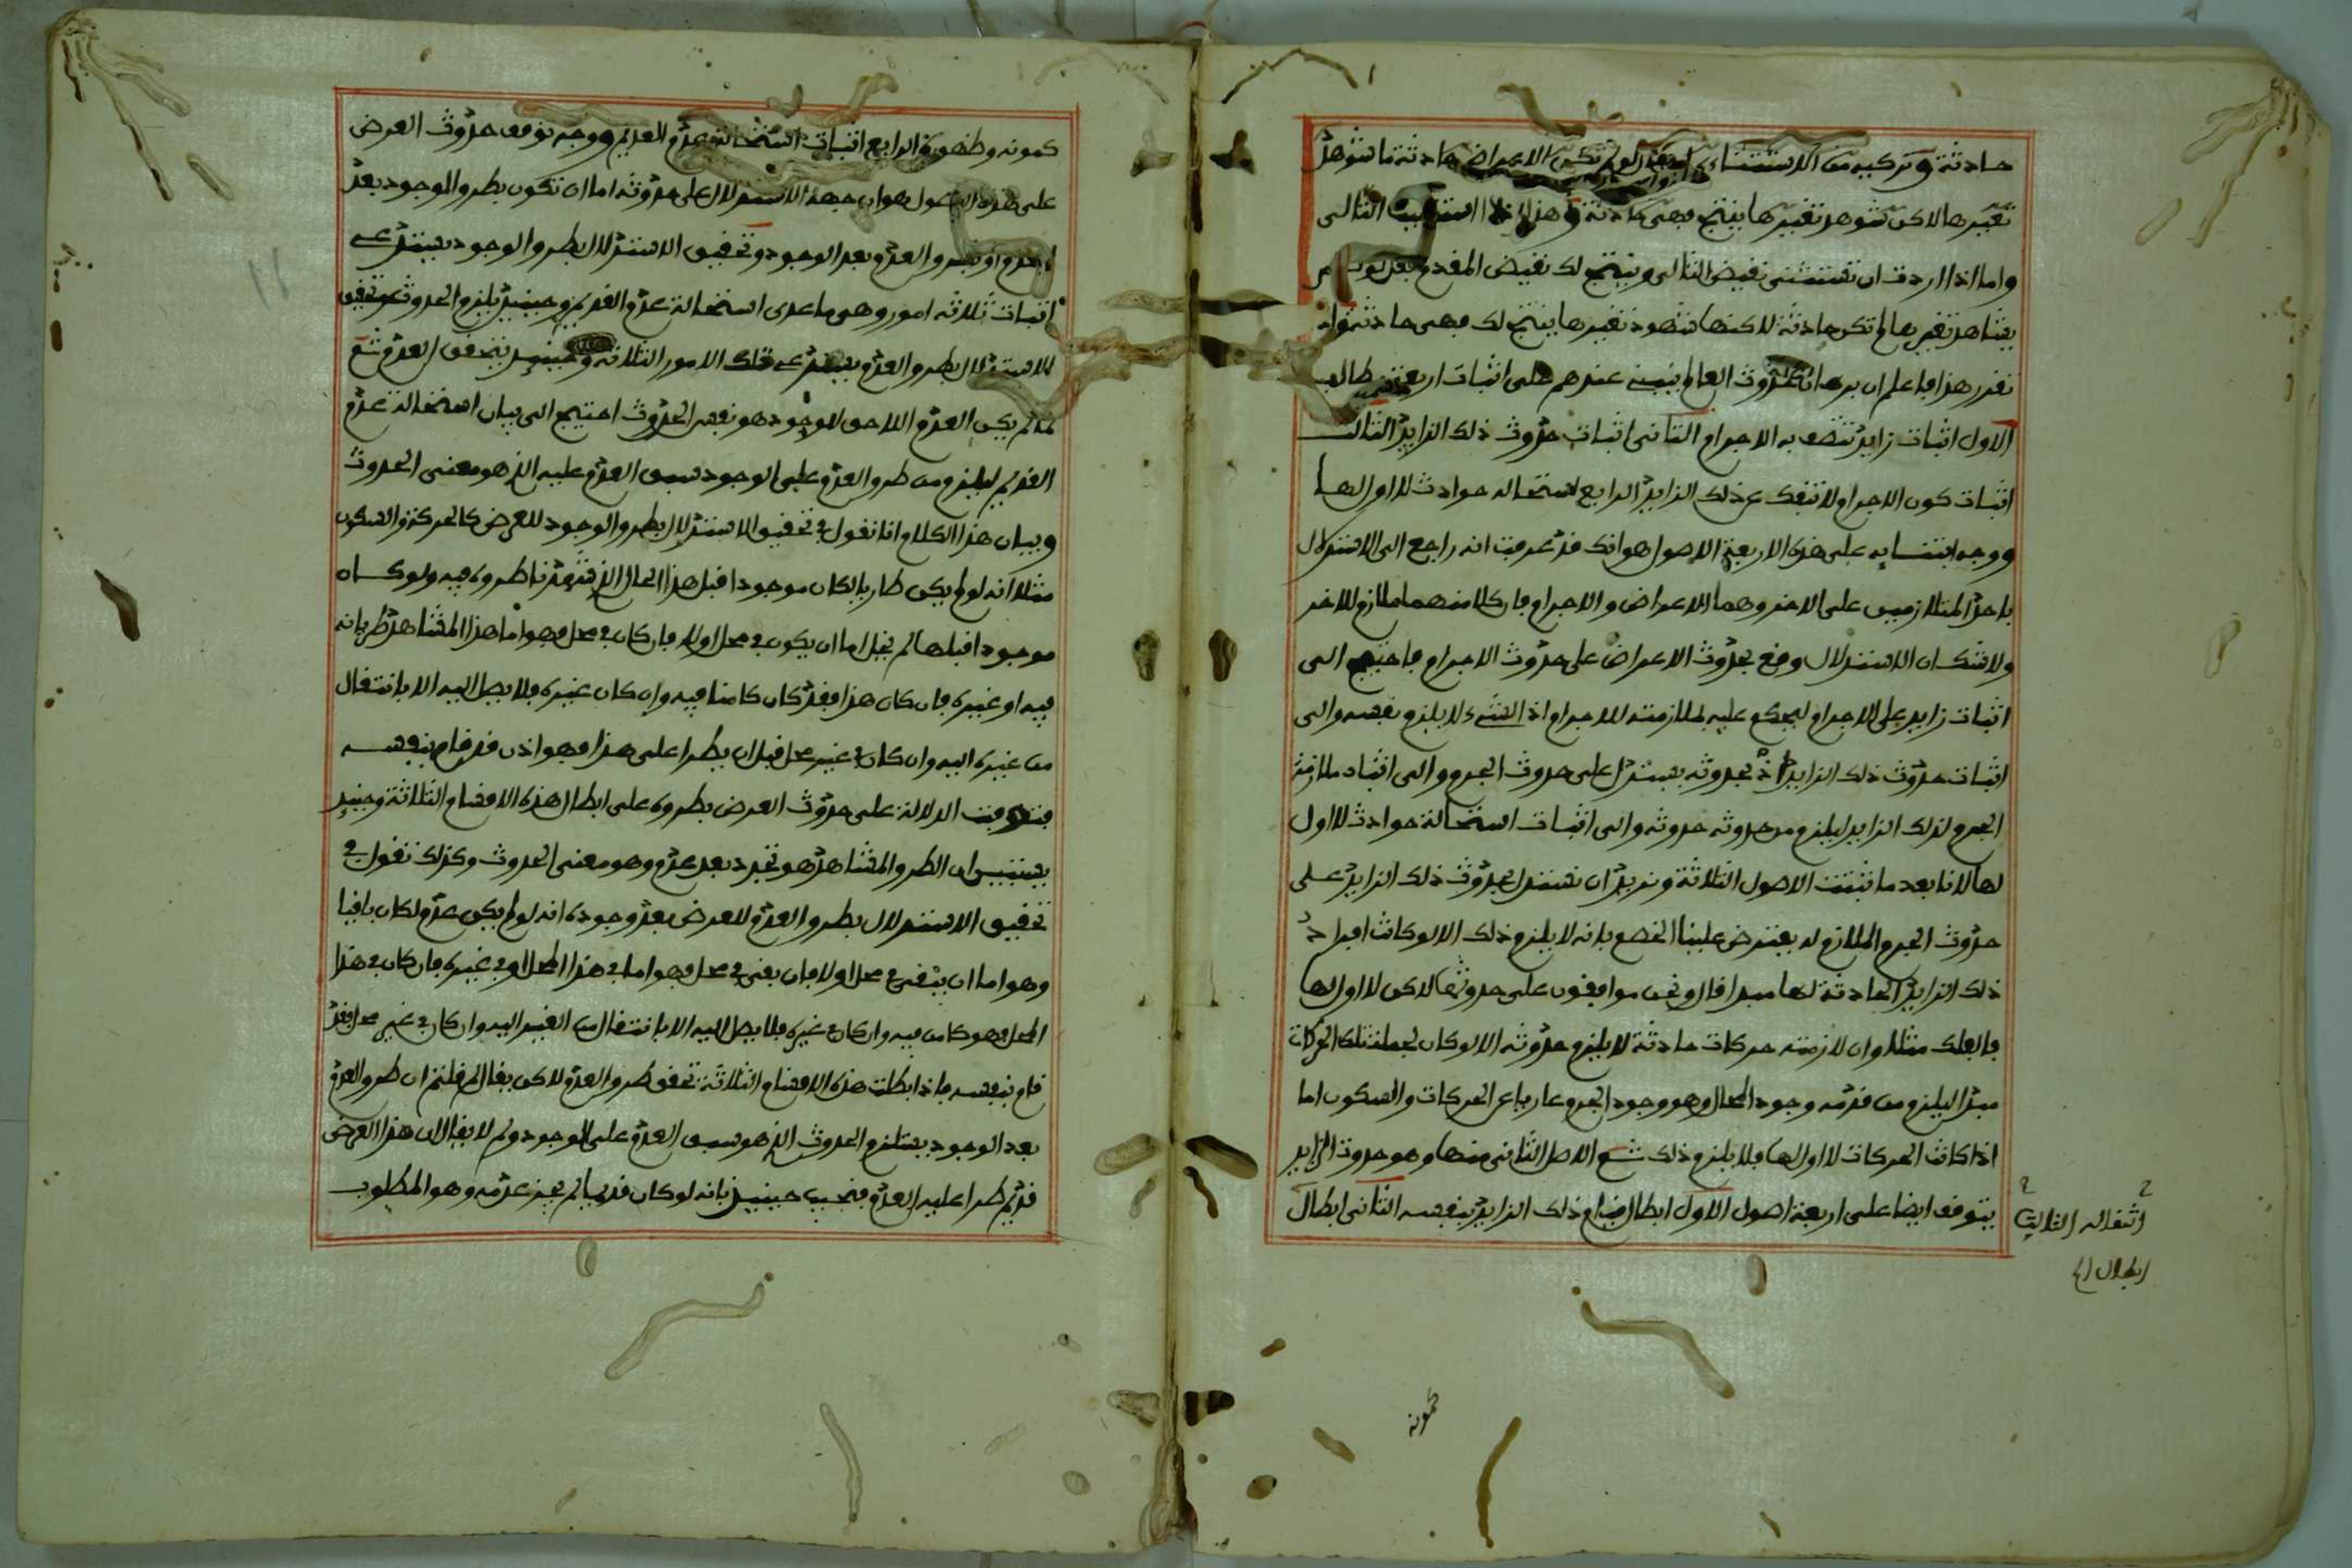 حادثة وتركيبه من الاستثناءي لو لم تكن الاعراض حادثة ما شوهد
تغيرها لاكن شوهد تغييرها ينتج فهي حادثة وهذا التالي
واما اذا اردت ان تستثني نقيض التالي وينتج لك نقيض المقدم
يشاهد تغيرها لم تكن حادثة لاكنها شهود تغييرها ينتج لك فهي حادثة واذ
تقرر هذا فاعلم ان برهان حدوث العالم ينبني عندهم على اثبات اربعة مطالب
الاول اثبات زايد تتصف به الاجرام الثاني اثبات حدوث ذلك الزايد الثالث
اثبات كون الاجرام لا تنفك عن ذلك الزايد الرابع استحالة حوادث لا اول لها
ووجه ابتنايه على هذه الاربعة الاصول هو انك قد عرفت انه راجع الى الاستدلال
باحد المتلازمين على الاخر وهما الاعراض والاجرام فان كلا منهما ملازم للاخر
ولا شك ان الاستدلال وقع بحدوث الاعراض على حدوث الاجرام فاحتيج الى
اثبات زايد على الاجرام ليحكم عليه بملازمته للاجرام اذ الشيء لا يلزم نفسه والى
اثبات حدوث ذلك الزايد اذ بحدوثه يستدل على حدوث الجرم والى اثبات ملازمة
الجرم لذلك الزايد ليلزم من حدوثه حدوثه والى اثبات استحالة حوادث لا اول
لها لانا بعد ما تثبت الاصول الثلاثة ونريد ان نستدل بحدوث ذلك الزايد على
حدوث الجرم الملازم له يعترض علينا الخصم بانه لا يلزم ذلك الا لو كانت افراد
ذلك الزايد الحادثة لها مبدا قالوا ونحن موافقون على حدوثها لاكن لا اول لها
فالفلك مثلا وان لازمته حركات حادثة لا يلزم حدوثه الا لو كان لجملة تلك الحركات
مبدا ليلزم من قدمه وجود المحال وهو وجود الجرم عاريا عن الحركات والسكون اما
اذا كانت الحركات لا اول لها فلا يلزم ذلك ثم الاصل الثاني منها وهو حدوث الزايد
يتوقف ايضا على اربعة اصول الاول ابطال قيام ذلك الزايد بنفسه الثاني ابطال
انتقاله الثالث
ابطال
كمونه
كمونه وظهوره الرابع اثبات استحالة عدم القديم ووجه توقف حدوث العرض
على هذه الاصول هو ان جهة الاستدلال على حدوثه اما ان تكون بطرو الوجود بعد
العدم او بطرو العدم بعد الوجود وتحقيق الاستدلال بطرو الوجود يستدعي
اثبات ثلاثة امور وهي ما عدى استحالة عدم القديم وحينيذ يلزم الحدوث وتحقيق
الاستدلال بطرو العدم يستدعي تلك الامور الثلاثة وحينيذ يتحقق العدم ثم
لما لم يكن العدم اللاحق للوجود هو نفس الحدوث احتيج الى بيان استحالة عدم
القديم ليلزم من طرو العدم على الوجود سبق العدم عليه الذي هو معنى الحدوث
وبيان هذا الكلام انا نقول في تحقيق الاستدلال بطرو الوجود للعرض كالحركة والسكون
مثلا انه لو لم يكن طاريا لكان موجودا قبل هذا الحال الذي شهدنا طروه فيه ولو كان
موجودا قبلها لم يخل اما ان يكون في محل او لا فان كان في محل فهو اما هذا المشاهد طريانه
فيه او غيره فان كان هذا فقد كان كامنا فيه وان كان غيره فلا يصل اليه الا بانتقال
من غيره اليه وان كان في غير محل قبل ان يطرا على هذا فهو اذن قد قام بنفسه
فتوقفت الدلالة على حدوث العرض بطروه على ابطال هذه الاقسام الثلاثة وحينيذ
يستبين ان الطرو المشاهد هو تجدد بعد عدم وهو معنى الحدوث وكذلك نقول في
تحقيق الاستدلال بطرو العدم للعرض بعد وجوده انه لو لم يكن عدم لكان باقيا
وهو اما ان يبقى في محل او لا فان بقي في محل فهو اما في هذا المحل او في غيره فان كان في هذا
المحل فهو كامن فيه وان كان في غيره فلا يصل اليه الا بانتقال من الغير اليه وان كان في غير محل فقد
قام بنفسه فاذا بطلت هذه الاقسام الثلاثة تحقق طرو العدم لاكن يقال لم قلتم ان طرو العدم
بعد الوجود يستلزم الحدوث الذي هو سبق العدم على الوجود ولم لا يقال ان هذا العرض
قديم طرا عليه العدم فنجيب حينيذ بانه لو كان قديما لم يجز عدمه وهو المطلوب